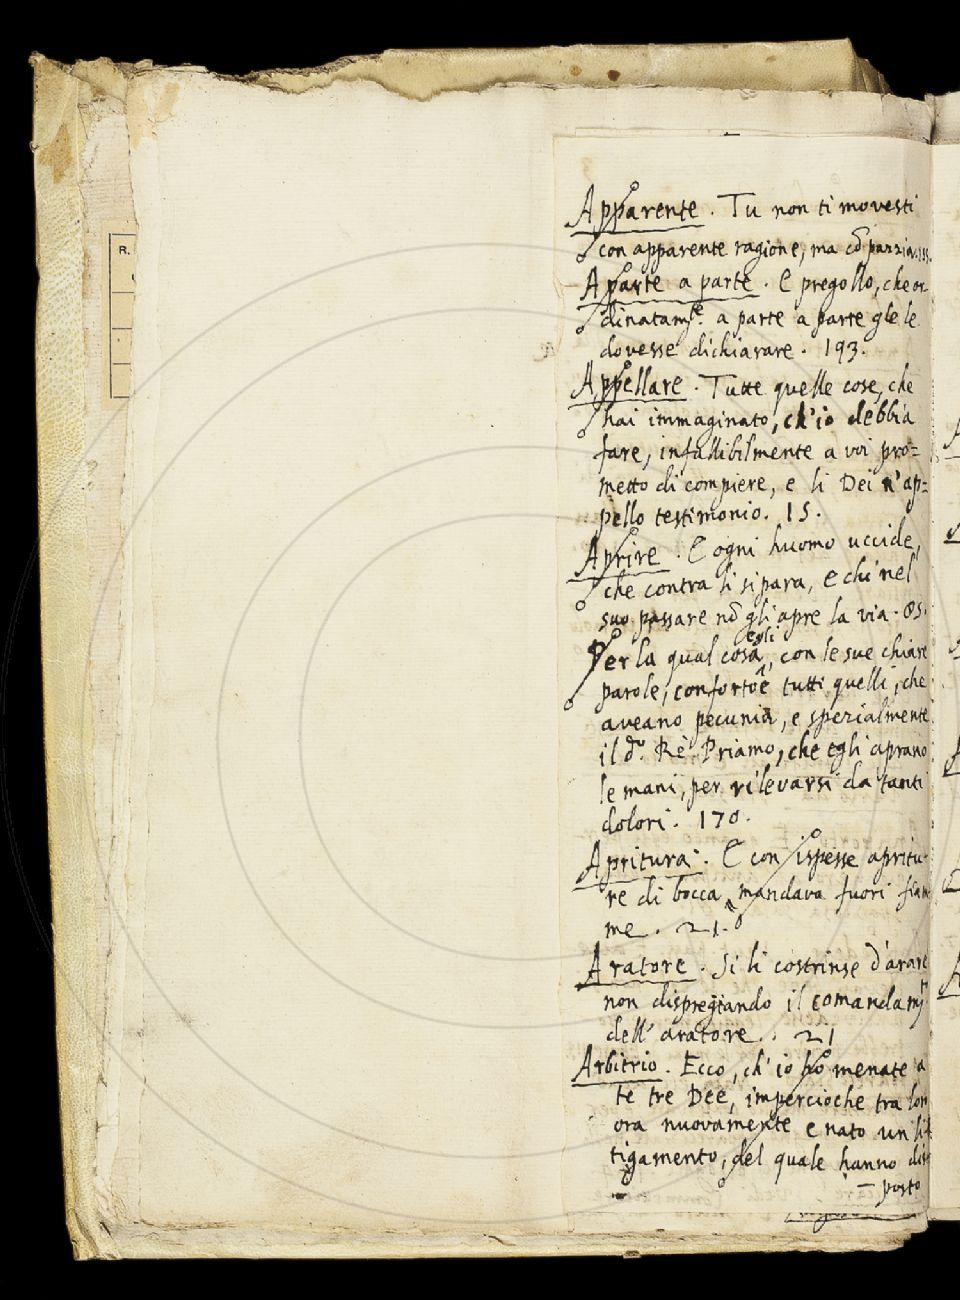 R.
Apparente. Tu non ti movesti
con apparente ragione, ma cõ
A parte a parte. E pregollo, che or
dinatam.e a parte a parte gle le
dovesse dichiarare. 193.
Appellare. Tutte quelle cose, che
hai immaginato, ch'io debbia
fare, infallibilmente a voi pro=
metto di compiere, e li Dei n'ap=
pello testimonio. 15.
Aprire. E ogni huomo uccide,
che contra li si para, e chi nel
suo passare nõ gli apre la via. 85.
Per la qual cosa egli, con le sue chiare
parole, confortòe tutti quelli, che
aveano pecunia, e spezialmente
il d.o Rè Priamo, che egli aprano
le mani, per rilevarsi da tanti
dolori. 170.
Apritura. E con ispesse apritu-
re di bocca mandava fuori fiam
me. 21.
Aratore. Si li costrinse d'arare
non dispregiando il comandam.to
dell' aratore.. 21
Arbitrio. Ecco, ch'io ho menate a
te tre Dee, impercioche tra lor
ora nuovamente e nato un lit
tigamento, del quale hanno dis
posto